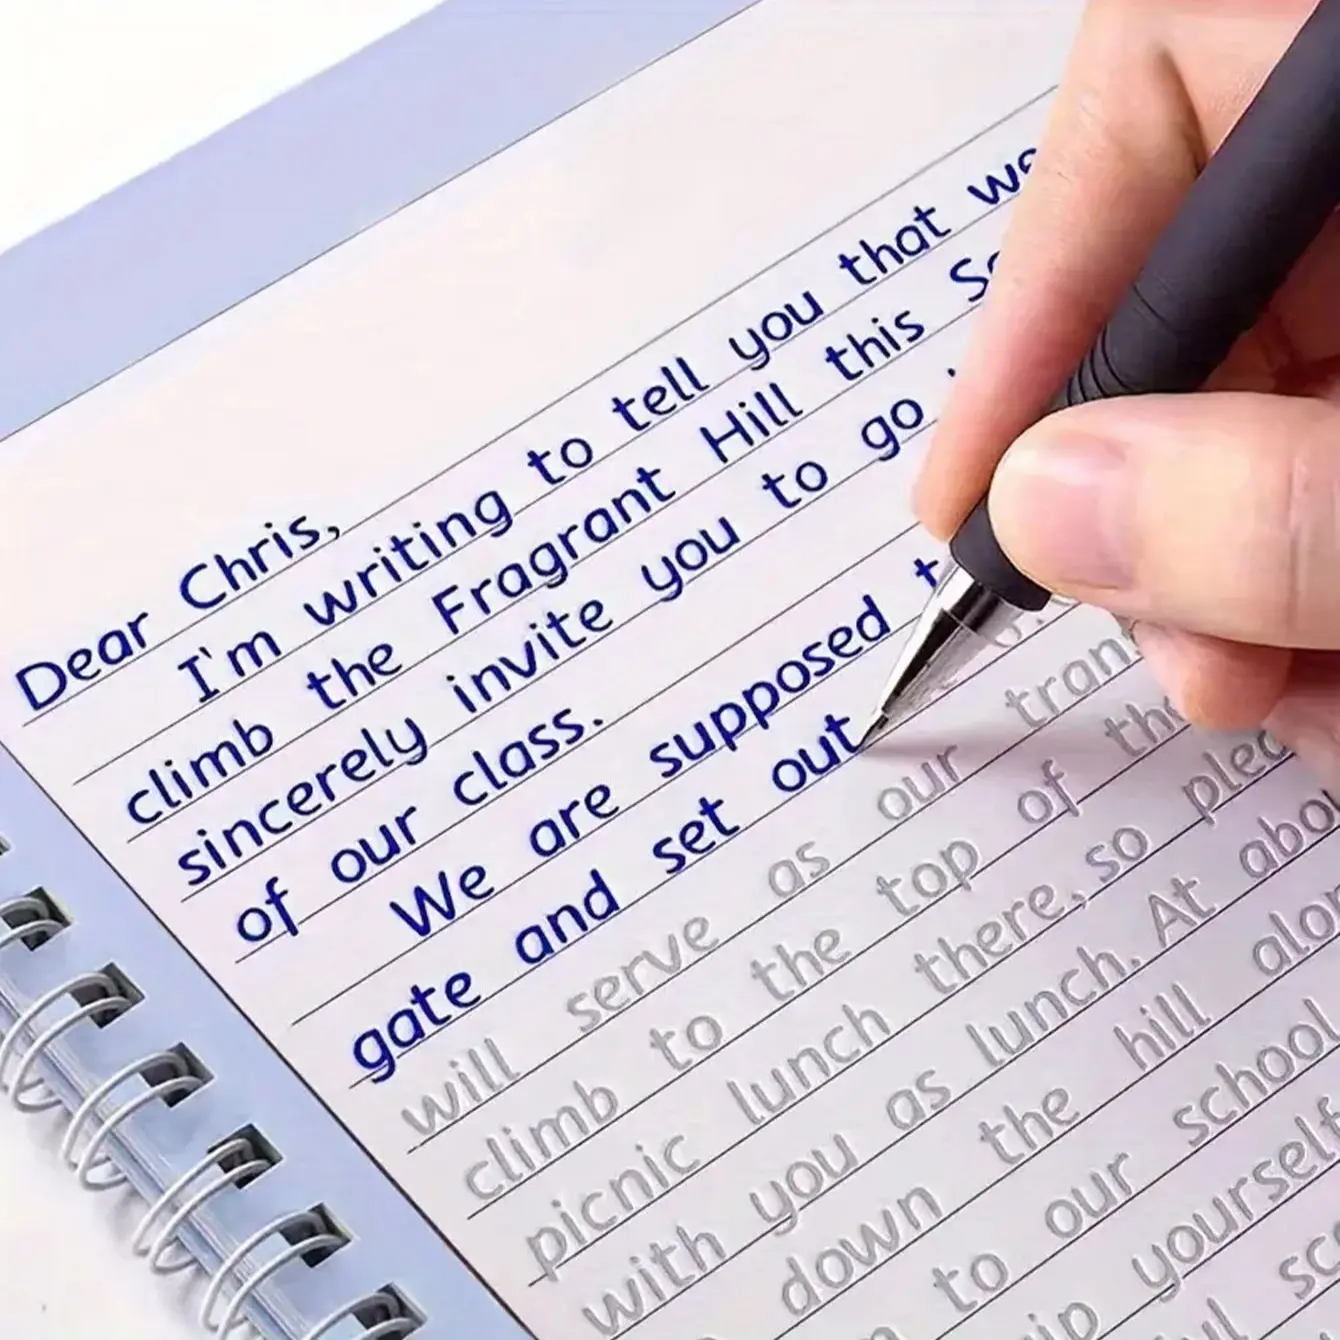 Dear Chris,
I'm writing to tell you that we
climb the Fragrant Hill this
sincerely invite you to go
of our class.
We are supposed
gate and set out
will serve as our
climb to the top of the
picnic lunch there, so
with you as lunch. At
down the hill
to our school
yourself